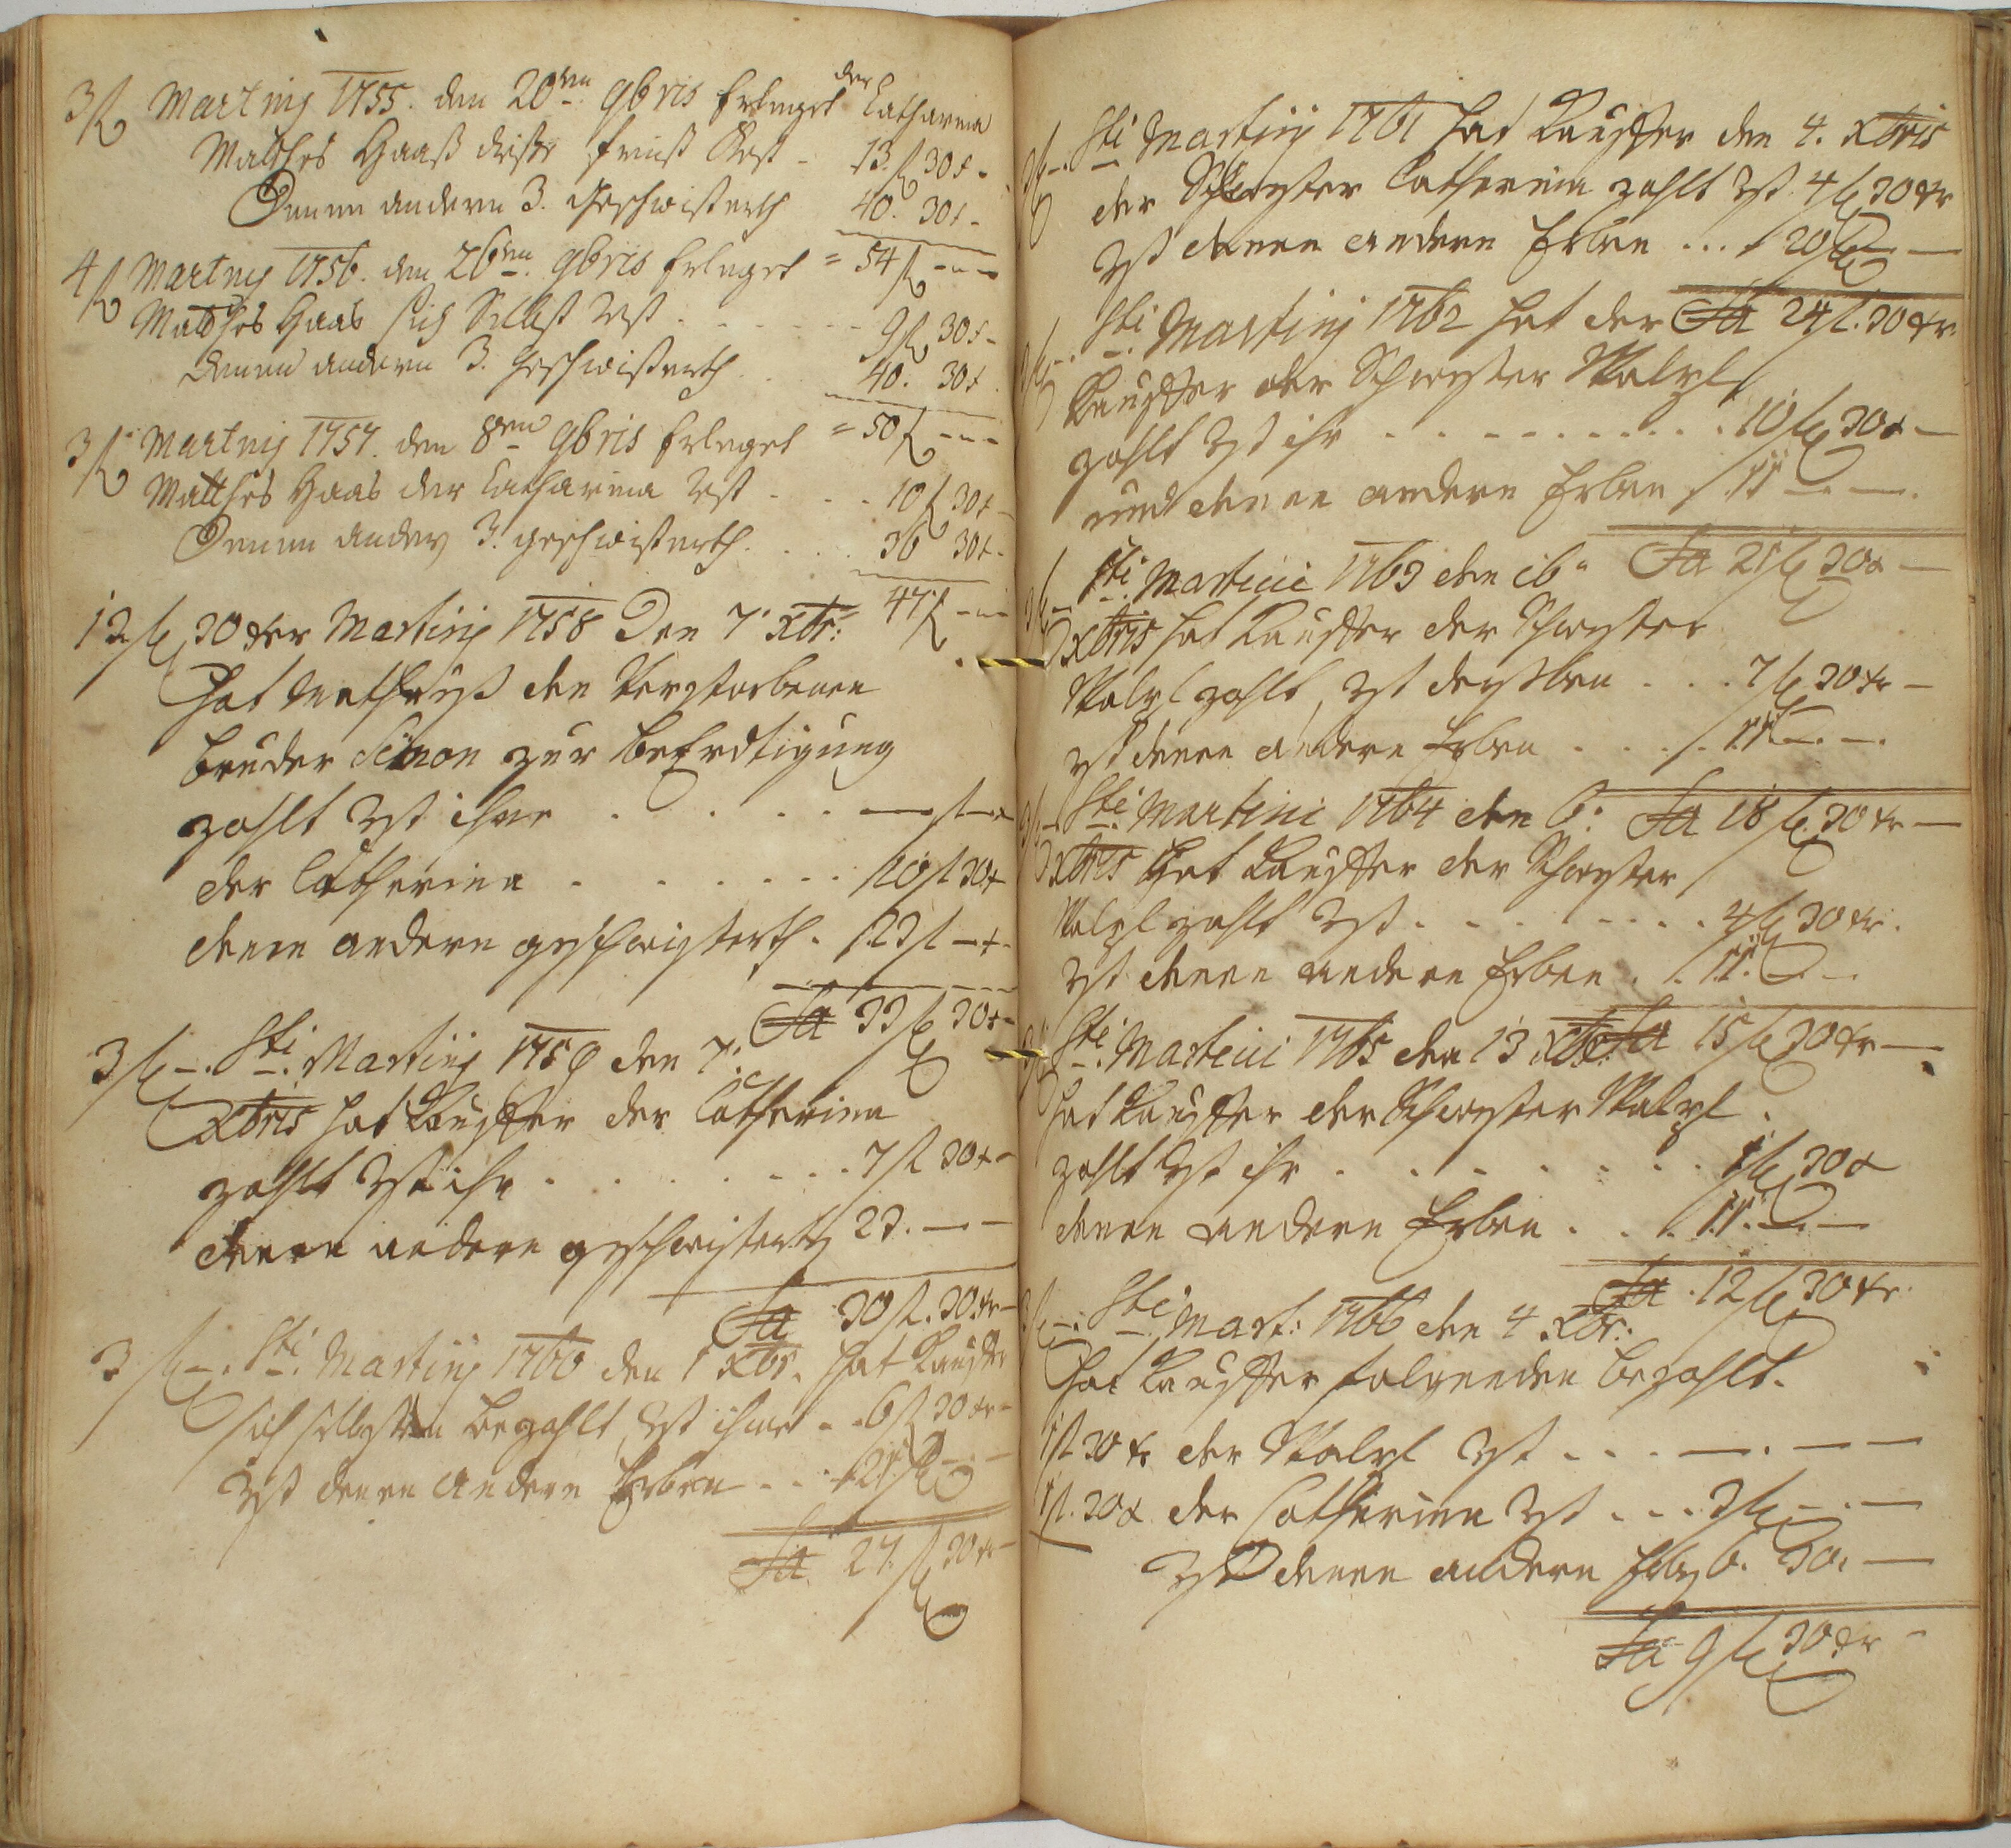 3 f Martinij 1755. den 20ten 9bris Erleget der Catharina
Matthes Haaß dieße frist Rest - 13 f 30 x -
Denen andern 3. Geschwisterth 40. 30 x -
= 54 f - - -
4 f Martinij 1756. den 26ten 9bris Erleget
Matthes Haas sich Selbst Rest . . . . . 9 f 30 x -
denen andern 3. geschwisterth . . 40. 30 x
= 50 f - - -
3 f Martinij 1757. den 8ten 9bris Erleget
Matthes Haas der Catharina Rest . . . 10 f 30 x
Denen andern 3. geschwisterth . . . . 36 30 x -
47 f - - -
12 f 30 xer Martinij 1758 Den 7. Xbr:
hat den Verstorbenen
bruder Simon zur beErdtigung
zahlt Rst ihme . . . . . — f — x
der Catharina . . . . . . 10 f 30 x
denen andern geschwisterth . 23 f — x -
Sa 33 f 30 x -
3 f — . Sti. Martinij 1759 den 7.
Xbris hat Kauffer der Catharina
zahlt Rst ihr . . . . . . 7 f 30 x -
denen andern geschwisterth 23. — —
Sa 30 f. 30 xr —
3 f — . Sti. Martinij 1760 den 1 Xbr. hat Kauffer
sich selbsten bezahlt, Rst ihme . . 6 f 30 xr -
Rst denen andern Erben . . . 21 f — —
Sa 27. f 30 xr —
3 f — . Sti Martinij 1761 hat Kauffer den 4. Xbris
der Schwester Catharina zahlt Rst. 4 f 30 xr
Rst denen andern Erben . . . 20 f — —
Sa 24 f. 30 xr.
3 f — . Sti. Martinij 1762 hat der
Kauffer der Schwester Walpl
zahlt Rst ihr . . . . . . . . . . 10 f 30 x —
und denen andern Erben 11 — . — .
Sa 21 f 30 x —
3 f — Sti. Martini 1763 den 16.
Xbris hat Kauffer der Schwester
Walpl zahlt, Rst derselben . . . 7 f 30 xr —
Rst denen andern Erben . . . . . 11 — . — .
Sa 18 f. 30 xr —
3 f — Sti. Martini 1764 den 6.
Xbris hat Kauffer der Schwester
Walpl zahlt Rst . . . . . . . . 4 f 30 xr .
Rst denen andern Erben . . 11. — —
Sa 15 f 30 xr —
3 f — Sti. Martini 1765 den 13 Xbr.
hat Kauffer der Schwester Walpl .
zahlt Rst ihr . . . . . . . 1 f 30 x
denen andern Erben . . . 11. — . —
Sa . 12 f 30 xr.
3 f — . Sti Mart: 1766 den 4 Xbr:
hat Kauffer folgenden bezahlt.
1 f 30 xr der Walpl Rst . . . — . — —
1 f. 30 x der Catharina Rst . . . 3 f — . —
Rst denen andern Erben 6. 30. —
Sa 9 f 30 xr —